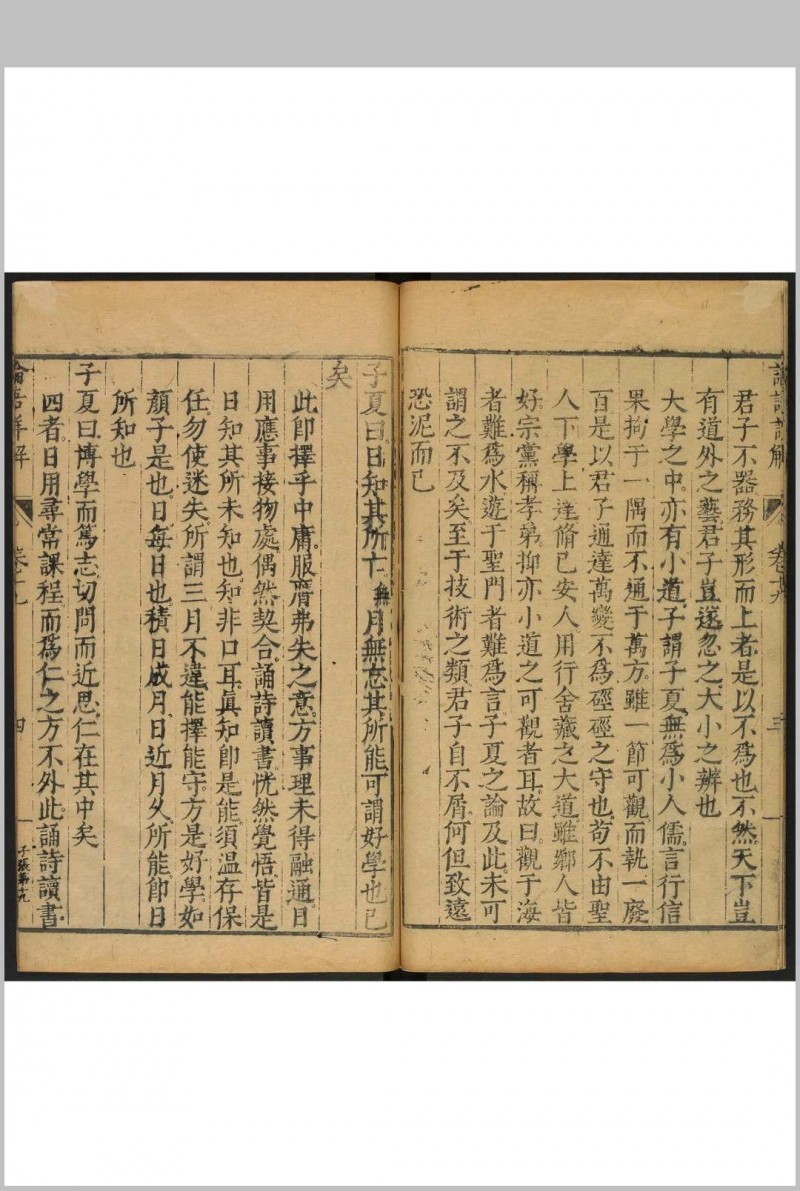 君子不器務其形而上者是以不為也不然天下豈
有道外之藝君子豈遂忽之大小之辨也
大學之中亦有小道子謂子夏無為小人儒言行信
果拘于一隅而不通于萬方雖一節可觀而執一廢
百是以君子通達萬變不為硜硜之守也苟不由聖
人下學上達脩己安人用行舍藏之大道雖鄉人皆
好宗黨稱孝弟抑亦小道之可觀者耳故曰觀于海
者難為水遊于聖門者難為言子夏之論及此未可
謂之不及矣至于技術之類君子自不屑何但致遠
恐泥而已
子夏曰日知其所亡無月無忘其所能可謂好學也已
矣
此即擇乎中庸服膺弗失之意方事理未得融通日
用應事接物處偶然契合誦詩讀書恍然覺悟皆是
日知其所未知也知非口耳真知即是能須溫存保
任勿使迷失所謂三月不違能擇能守方是好學如
顏子是也日每日也積日成月日近月久所能即日
所知也
子夏曰博學而篤志切問而近思仁在其中矣
四者日用尋常課程而為仁之方不外此誦詩讀書
卷十九
四
子張第十九